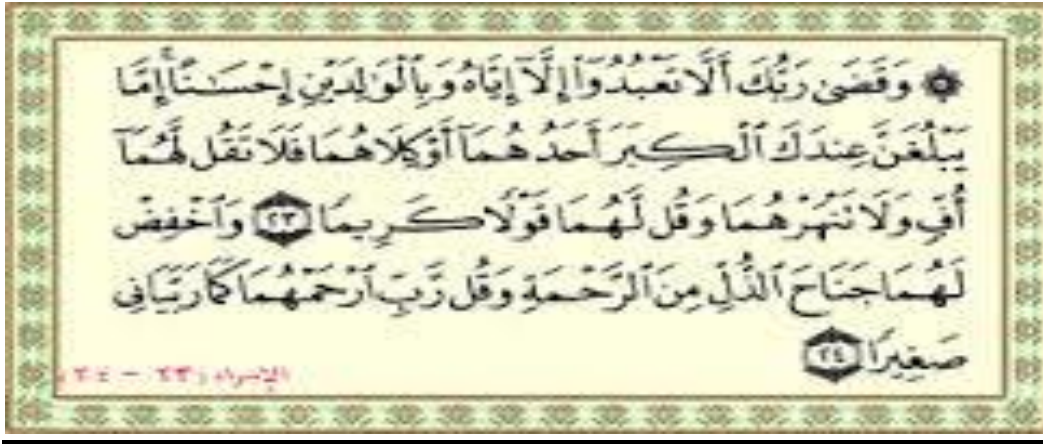 ۞ وَقَضَىٰ رَبُّكَ أَلَّا تَعْبُدُوٓا۟ إِلَّآ إِيَّاهُ وَبِٱلْوَٰلِدَيْنِ إِحْسَـٰنًا ۚ إِمَّا
يَبْلُغَنَّ عِندَكَ ٱلْكِبَرَ أَحَدُهُمَآ أَوْ كِلَاهُمَا فَلَا تَقُل لَّهُمَآ
أُفٍّ وَلَا تَنْهَرْهُمَا وَقُل لَّهُمَا قَوْلًا كَرِيمًا ٢٣ وَٱخْفِضْ
لَهُمَا جَنَاحَ ٱلذُّلِّ مِنَ ٱلرَّحْمَةِ وَقُل رَّبِّ ٱرْحَمْهُمَا كَمَا رَبَّيَانِى
صَغِيرًا ٢٤
الإسراء: ٢٣ - ٢٤